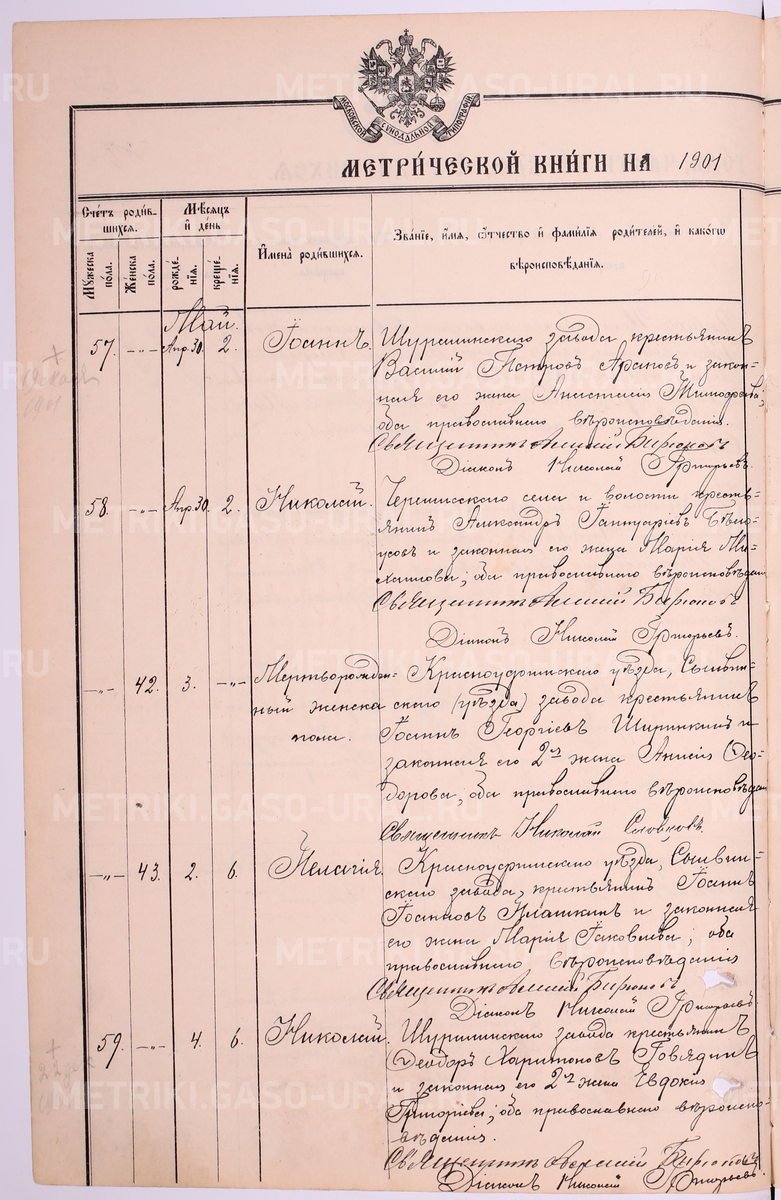 МОСКОВСКОЙ СѴНОДАЛЬНОЙ ТИПОГРАФІИ
МЕТРИ́ЧЕСКОЙ КНИ́ГИ НА 1901
Сче́тъ роди́в-
шихся.
Мѣ́сяцъ
и҆ де́нь
Мꙋ́жеска по́ла.
Же́нска по́ла.
рожде́-
нїѧ.
креще́-
нїѧ.
И҆мена̀ роди́вшихсѧ.
Зва́нїе, и҆́мѧ, ѻ҆́тчество и҆ фами́лїѧ роди́телей, и҆ како́гѡ
вѣроисповѣ́данїѧ.
Май.
57. -„- Апр. 30. 2. Іоаннъ. Шуралинскаго завода крестьянинъ
Василій Петровъ и закон-
ная его жена Анастасія
оба православнаго вѣроисповѣданія.
Священникъ Алексій Бирюковъ
Діаконъ Николай Григорьевъ.
58. -„- Апр. 30. 2. Николай. села и волости кресть-
янинъ Александръ Бѣло-
усовъ и законная его жена Марія Ми-
хаилова; оба православнаго вѣроисповѣданія
Священникъ Алексій Бирюковъ
Діаконъ Николай Григорьевъ.
-„- 42. 3. -„- Мертворожден- Красноуфимскаго уѣзда, Сылвин-
ный женска скаго (уѣзда) завода крестьянинъ
пола. Іоаннъ Георгіевъ Ширинкинъ и
законная его 2ч жена Анисія Ѳео-
дорова, оба православнаго вѣроисповѣданія
Священникъ Николай Словцовъ.
-„- 43. 2. 6. Пелагія. Красноуфимскаго уѣзда, Сылвин-
скаго завода, крестьянинъ Іоаннъ
Іоанновъ и законная
его жена Марія Іаковлева; оба
православнаго вѣроисповѣданія
Священникъ Алексій Бирюковъ
Діаконъ Николай Григорьевъ.
59. -„- 4. 6. Николай. Шуралинскаго завода крестьянинъ
Ѳеодоръ Харитоновъ Говядинъ
и законная его 2ч жена Евдокія
Григорьева; оба православнаго вѣроиспо-
вѣданія.
Священникъ Алексій Бирюковъ
Діаконъ Николай Григорьевъ.
METRIKI.GASO-URAL.RU